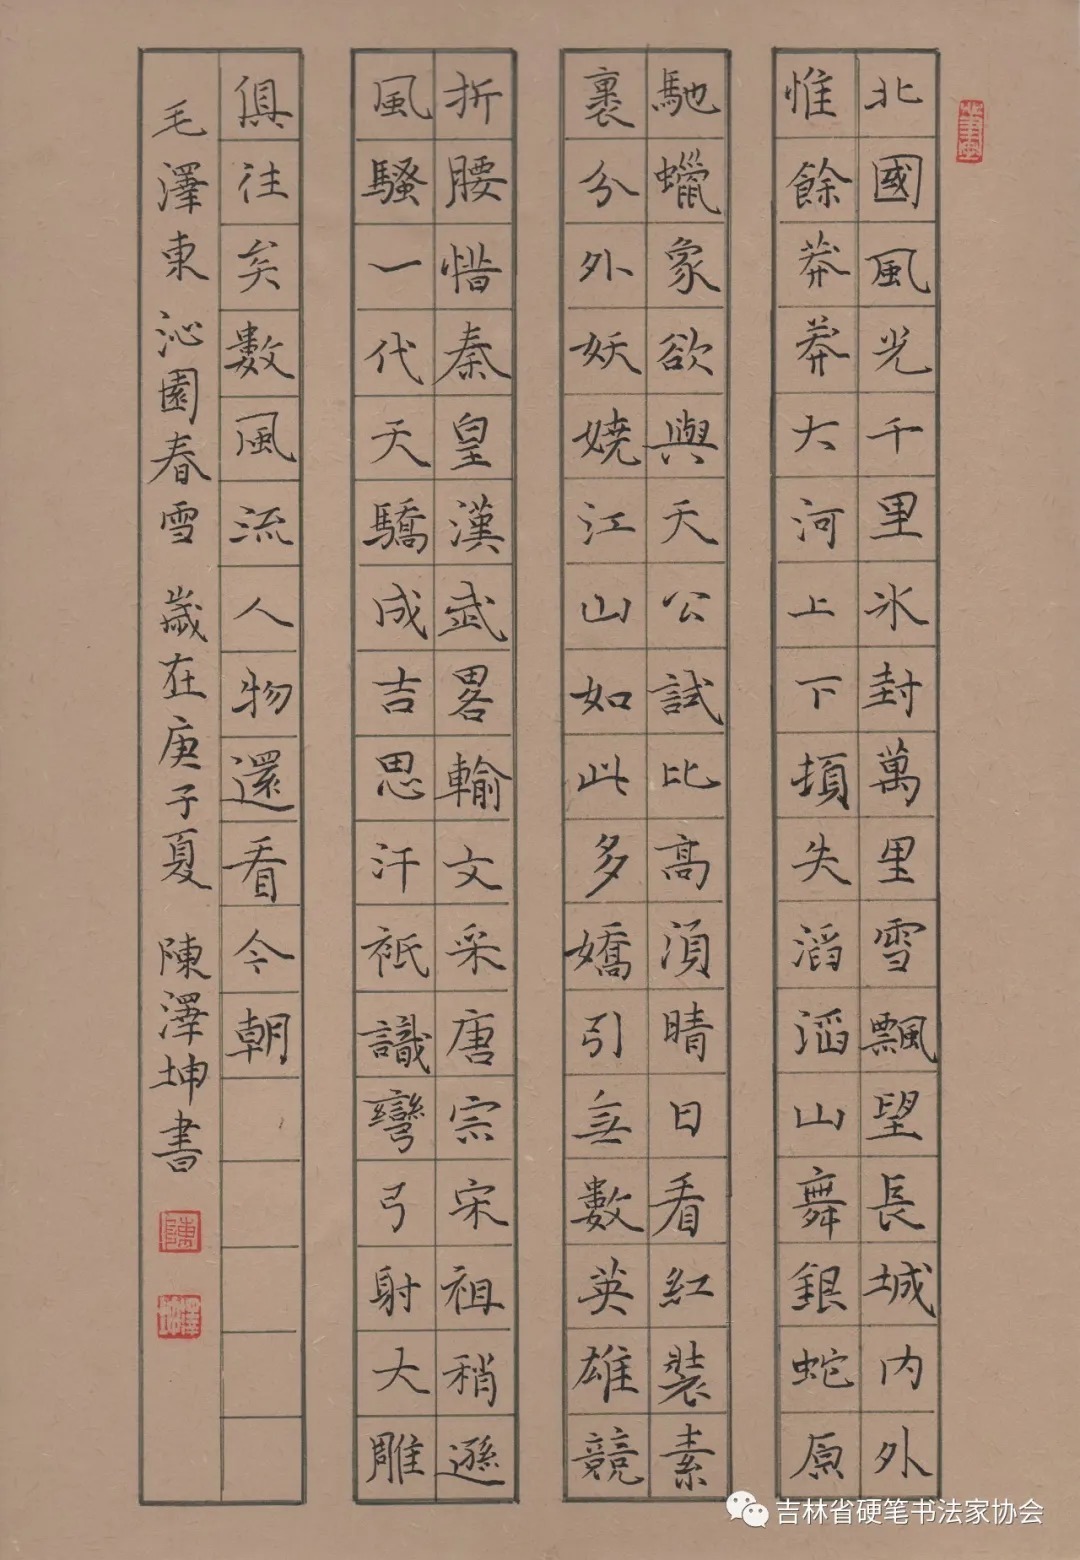 北國風光千里冰封萬里雪飄望長城内外
惟餘莽莽大河上下頓失滔滔山舞銀蛇原
馳蠟象欲與天公試比高湏晴日看紅裝素
裹分外妖嬈江山如此多嬌引無數英雄競
折腰惜秦皇漢武畧輸文采唐宗宋祖稍遜
風騷一代天驕成吉思汗衹識彎弓射大雕
俱往矣數風流人物還看今朝
毛澤東 沁園春雪 歲在庚子夏 陳澤坤書
陳
澤坤
吉林省硬笔书法家协会